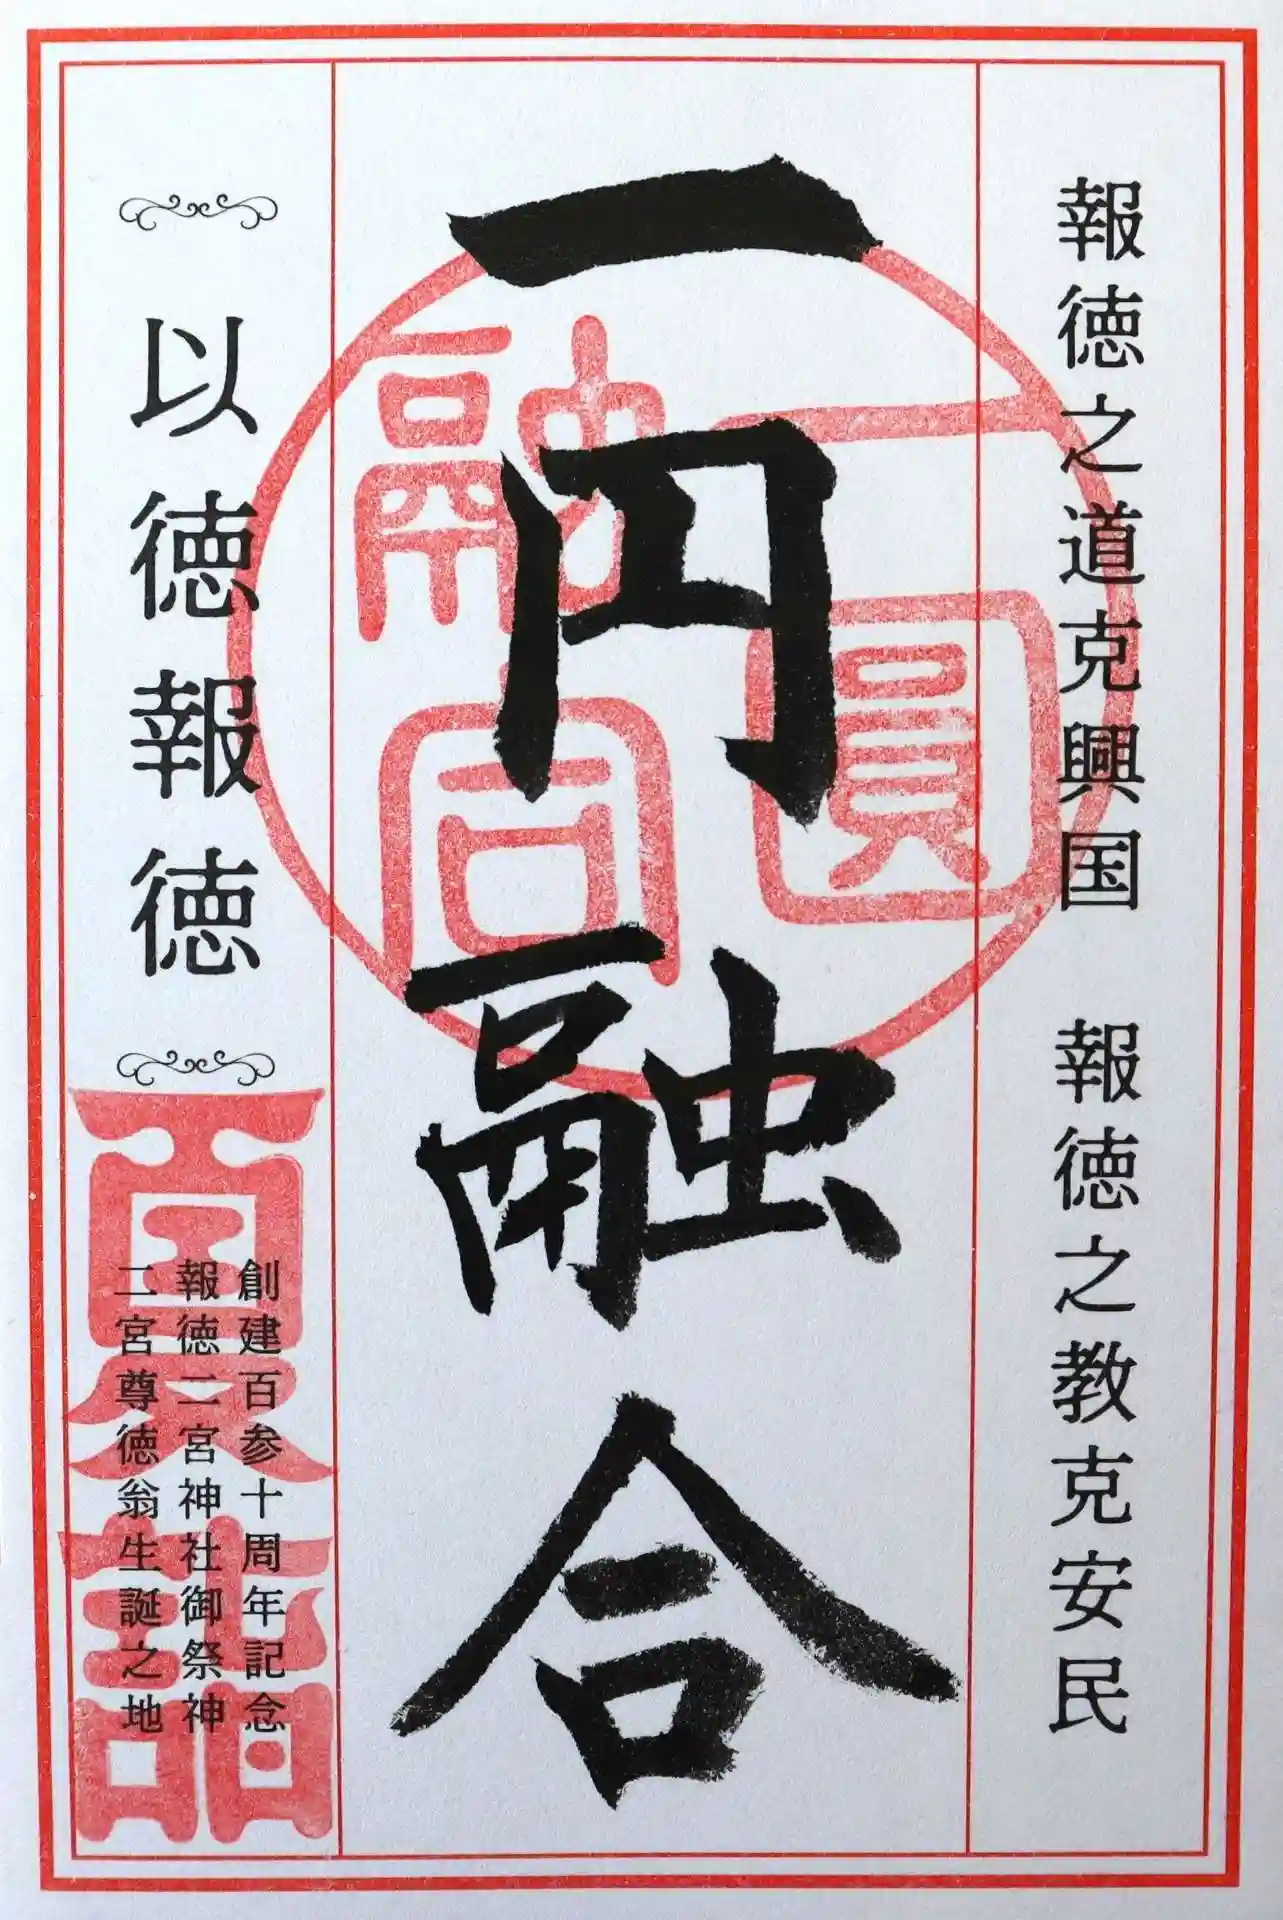 報徳之道克興国　報徳之教克安民
一円融合
一圓
融合
以徳報徳
夏詣
創建百参十周年記念
報徳二宮神社御祭神
二宮尊徳翁生誕之地